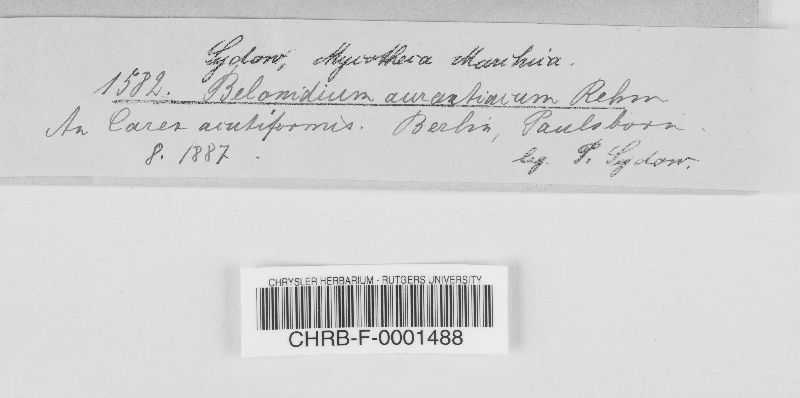 Sydow, Mycotheca Marchica.
1582. Belonidium aurantiacum Rehm
An Carex acutiformis. Berlin, Paulsborn.
8. 1887.
leg. P. Sydow.
CHRYSLER HERBARIUM - RUTGERS UNIVERSITY
CHRB-F-0001488